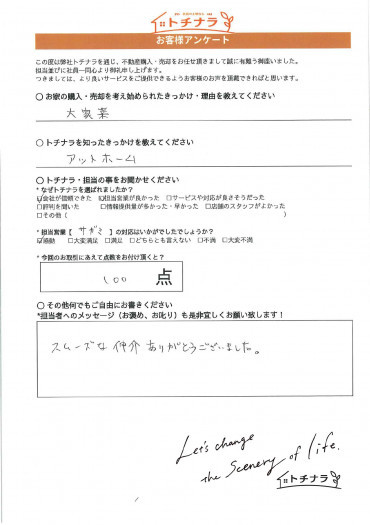 トチナラ
お客様アンケート
この度は弊社トチナラを通じ、不動産購入・売却をお任せ頂きまして誠に有難う御座いました。
担当並びに社員一同心より御礼申し上げます。
つきましては、より良いサービスをご提供できるようお客様のお声を頂戴できればと思います。
○ お家の購入・売却を考え始められたきっかけ・理由を教えてください
大家業
○ トチナラを知ったきっかけを教えてください
アットホーム
○ トチナラ・担当の事をお聞かせください
* なぜトチナラを選ばれましたか？
☑会社が信頼できた ☑担当営業が良かった □サービスや対応が良さそうだった
□評判を聞いた □情報提供量が多かった・早かった □店舗のスタッフがよかった
□その他（ ）
* 担当営業【 サガミ 】の対応はいかがでしたでしょうか？
☑感動 □大変満足 □満足 □どちらとも言えない □不満 □大変不満
* 今回のお取引にあえて点数をお付け頂くと？
100 点
○ その他何でもご自由にお書きください
*担当者へのメッセージ（お褒め、お叱り）も是非宜しくお願い致します！
スムーズな仲介ありがとうございました。
Let's change
the Scenery of life.
トチナラ